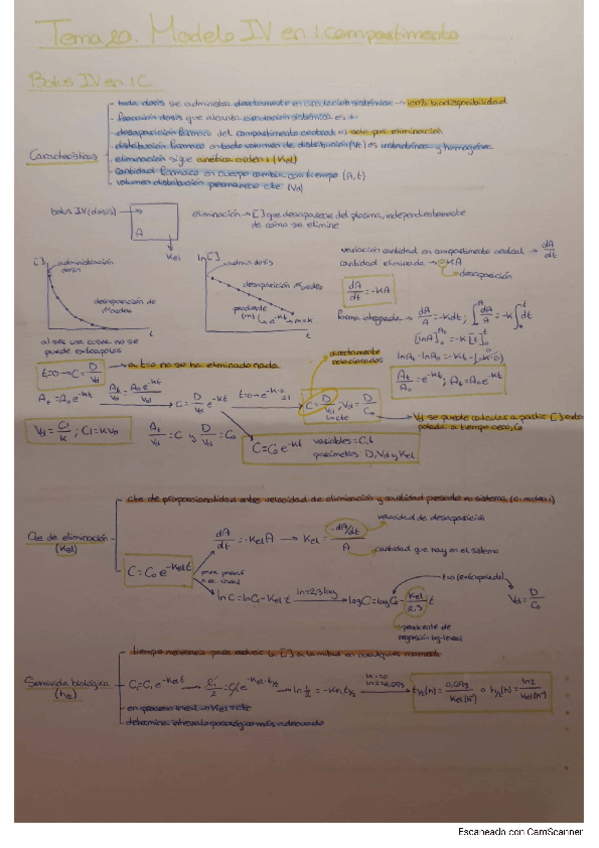 Tema 20. Modelo IV en 1 compartimento
Bolus IV en 1C
Características
- toda dosis se administra directamente en circulación sistémica → 100% biodisponibilidad
- fracción dosis que alcanza circulación sistémica es 1
- desaparición fármaco del compartimento central es solo por eliminación
- distribución fármaco en todo volumen de distribución (Vd) es instantánea y homogénea
- eliminación sigue cinética orden 1 (Kel)
- cantidad fármaco en cuerpo cambia con tiempo (A, t)
- volumen distribución permanece cte (Vd)
bolus IV (dosis)
A
Kel
eliminación → [ ] que desaparece del plasma, independientemente
de cómo se elimine
[ ]
administración
dosis
desaparición de
t
al ser una curva no se
puede extrapolar
ln [ ]
admin dosis
desaparición
pendiente
(m)
t
variación cantidad en compartimento central → dA/dt
cantidad eliminada → -KA
desaparición
dA/dt = -KA
forma integrada → dA/A = -Kdt ; ∫dA/A = -K∫dt
[lnA] = -K[t]
At/A0 = e^-Kt ; At = A0e^-Kt
t=0 → C = D/Vd → a t=0 no se ha eliminado nada
directamente
relacionados
At = A0e^-Kt
At/Vd = A0e^-Kt/Vd
C = D/Vd e^-Kt
C = D/Vd ; Vd = D/C0
cte
Vd se puede calcular a partir [ ] extra
polada a tiempo cero, C0
Vd = Cl/K ; Cl = KVd
At/Vd = C y D/Vd = C0
C = C0e^-Kt
variables = C, t
parámetros = D, Vd y Kel
Cte de eliminación
(Kel)
- cte de proporcionalidad entre velocidad de eliminación y cantidad presente en sistema (c. orden 1)
velocidad de desaparición
dA/dt = -Kel A → Kel = -dA/dt / A
cantidad que hay en el sistema
C = C0 e^-Kel t
lnC = lnC0 - Kel t
ln = 2,3 log
logC = logC0 - Kel/2,3 t
t=0 (extrapolado)
Vd = D/C0
pendiente de
regresión log-lineal
Semivida biológica
- tiempo necesario para reducir la [ ] a la mitad en cualquier momento
ln 1/2 = -Kel t1/2
t1/2 (h) = 0,693/Kel (h⁻¹) o t1/2 (h) = ln2/Kel (h⁻¹)
- en proceso lineal → Kel = cte
- determina intervalo posológico más adecuado
Escaneado con CamScanner